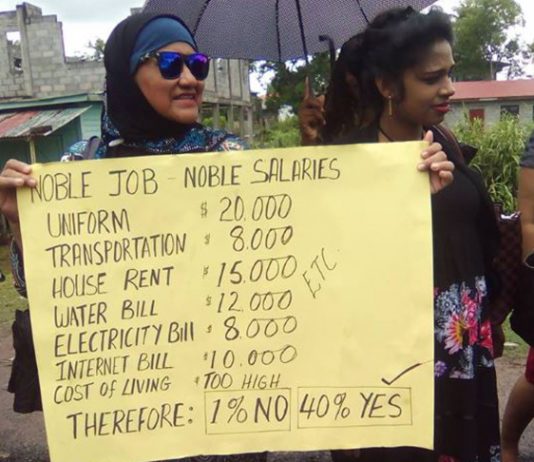 NOBLE JOB - NOBLE SALARIES
UNIFORM $ 20.000
TRANSPORTATION $ 8.000
HOUSE RENT $ 15.000
WATER BILL $ 12.000
ELECTRICITY Bill $ 8.000
INTERNET BILL $10.000
ETC
COST OF LIVING $TOO HIGH
THEREFORE: 1% NO 40% YES